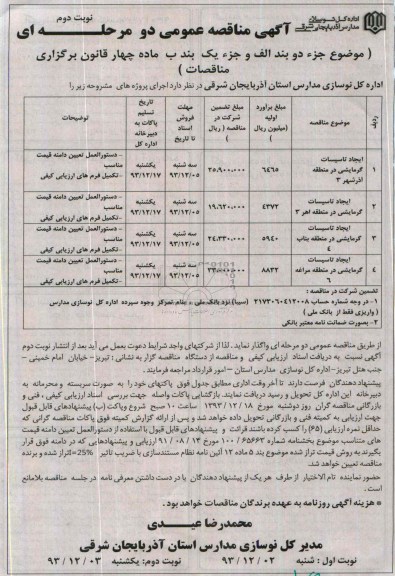 اداره کل نوسازی مدارس آذربایجان شرقی
نوبت دوم
آگهی مناقصه عمومی دو مرحله ای
( موضوع جزء دو بند الف و جزء یک بند ب ماده چهار قانون برگزاری
مناقصات )
اداره کل نوسازی مدارس استان آذربایجان شرقی در نظر دارد اجرای پروژه های مشروحه زیر را
ردیف | موضوع مناقصه | مبلغ براورد اولیه (میلیون ریال) | مبلغ تضمین شرکت در مناقصه ( ریال ) | مهلت فروش اسناد تا تاریخ | تاریخ تسلیم پاکات به دبیرخانه اداره کل | توضیحات
۱ | ایجاد تاسیسات گرمایشی در منطقه آذرشهر ۳ | ۶۴۶۵ | ۲۵،۹۰۰،۰۰۰ | سه شنبه ۹۳/۱۲/۰۵ | یکشنبه ۹۳/۱۲/۱۷ | - دستورالعمل تعیین دامنه قیمت مناسب -تکمیل فرم های ارزیابی کیفی
۲ | ایجاد تاسیسات گرمایشی در منطقه اهر ۳ | ۴۳۷۲ | ۱۹،۶۲۰،۰۰۰ | سه شنبه ۹۳/۱۲/۰۵ | یکشنبه ۹۳/۱۲/۱۷ | - دستورالعمل تعیین دامنه قیمت مناسب -تکمیل فرم های ارزیابی کیفی
۳ | ایجاد تاسیسات گرمایشی در منطقه بناب ۴ | ۵۹۴۰ | ۲۴،۳۳۰،۰۰۰ | سه شنبه ۹۳/۱۲/۰۵ | یکشنبه ۹۳/۱۲/۱۷ | - دستورالعمل تعیین دامنه قیمت مناسب -تکمیل فرم های ارزیابی کیفی
۴ | ایجاد تاسیسات گرمایشی در منطقه مراغه ۶ | ۸۸۳۲ | سه شنبه ۹۳/۱۲/۰۵ | یکشنبه ۹۳/۱۲/۱۷ | - دستورالعمل تعیین دامنه قیمت مناسب -تکمیل فرم های ارزیابی کیفی
تضمین شرکت در مناقصه :
۱- در وجه شماره حساب ۲۱۷۳۰۶۰۴۱۲۰۰۸ (سیبا) نزد بانک ملی ، بنام تمرکز وجوه سپرده اداره کل نوسازی مدارس
( واریزی فقط از بانک ملی )
۲- بصورت ضمانت نامه معتبر بانکی
از طریق مناقصه عمومی دو مرحله ای واگذار نماید. لذا از شرکتهای واجد شرایط دعوت بعمل می آید بعد از انتشار نوبت دوم
آگهی نسبت به دریافت اسناد ارزیابی کیفی و مناقصه از دستگاه مناقصه گزار به نشانی : تبریز- خیابان امام خمینی –
جنب هتل تبریز – اداره کل نوسازی مدارس استان – امور قرارداد مراجعه فرمایند .
پیشنهاد دهندگان فرصت دارند تا آخر وقت اداری مطابق جدول فوق پاکتهای خود را به صورت سربسته و محرمانه به
دبیرخانه این اداره کل تحویل و رسید دریافت نمایند. بازگشایی پاکات واصله جهت بررسی اسناد ارزیابی کیفی ، فنی و
بازرگانی مناقصه گران روز دوشنبه مورخ ۱۸ / ۱۲ / ۱۳۹۳ ساعت ۱۰ صبح شروع و پاکت (ب) پیشنهادهای قابل قبول
جهت ارزیابی به کمیته فنی و بازرگانی تحویل داده خواهد شد و پس از ارائه گزارش کمیته فوق پاکات مناقصه گرانی که
حداقل نمره ارزیابی (۶۵) را کسب کرده باشند قرائت و پیشنهادهای قابل قبول با استفاده از دستورالعمل تعیین دامنه قیمت
های متناسب موضوع بخشنامه شماره ۶۵۶۶۳ / ۱۰۰ مورخ ۱۳ / ۰۸ / ۹۱ ارزیابی و پیشنهادهایی که در دامنه فوق قرار
بگیرند به روش قیمت تراز شده موضوع بند ۵ ماده ۱۲ آئین نامه نظام مستندسازی با ضریب تاثیر 25%=i تراز شده و برنده
مناقصه تعیین خواهد شد.
حضور نماینده تام الاختیار از طرف هریک از پیشنهاد دهندگان با در دست داشتن معرفی نامه در جلسه مناقصه بلامانع
است .
* هزینه آگهی روزنامه به عهده برندگان مناقصات خواهد بود .
محمدرضا عیدی
مدیر کل نوسازی مدارس استان آذربایجان شرقی
نوبت اول : شنبه ۰۲ / ۱۲ / ۹۳ نوبت دوم: یکشنبه ۰۳ / ۱۲ / ۹۳